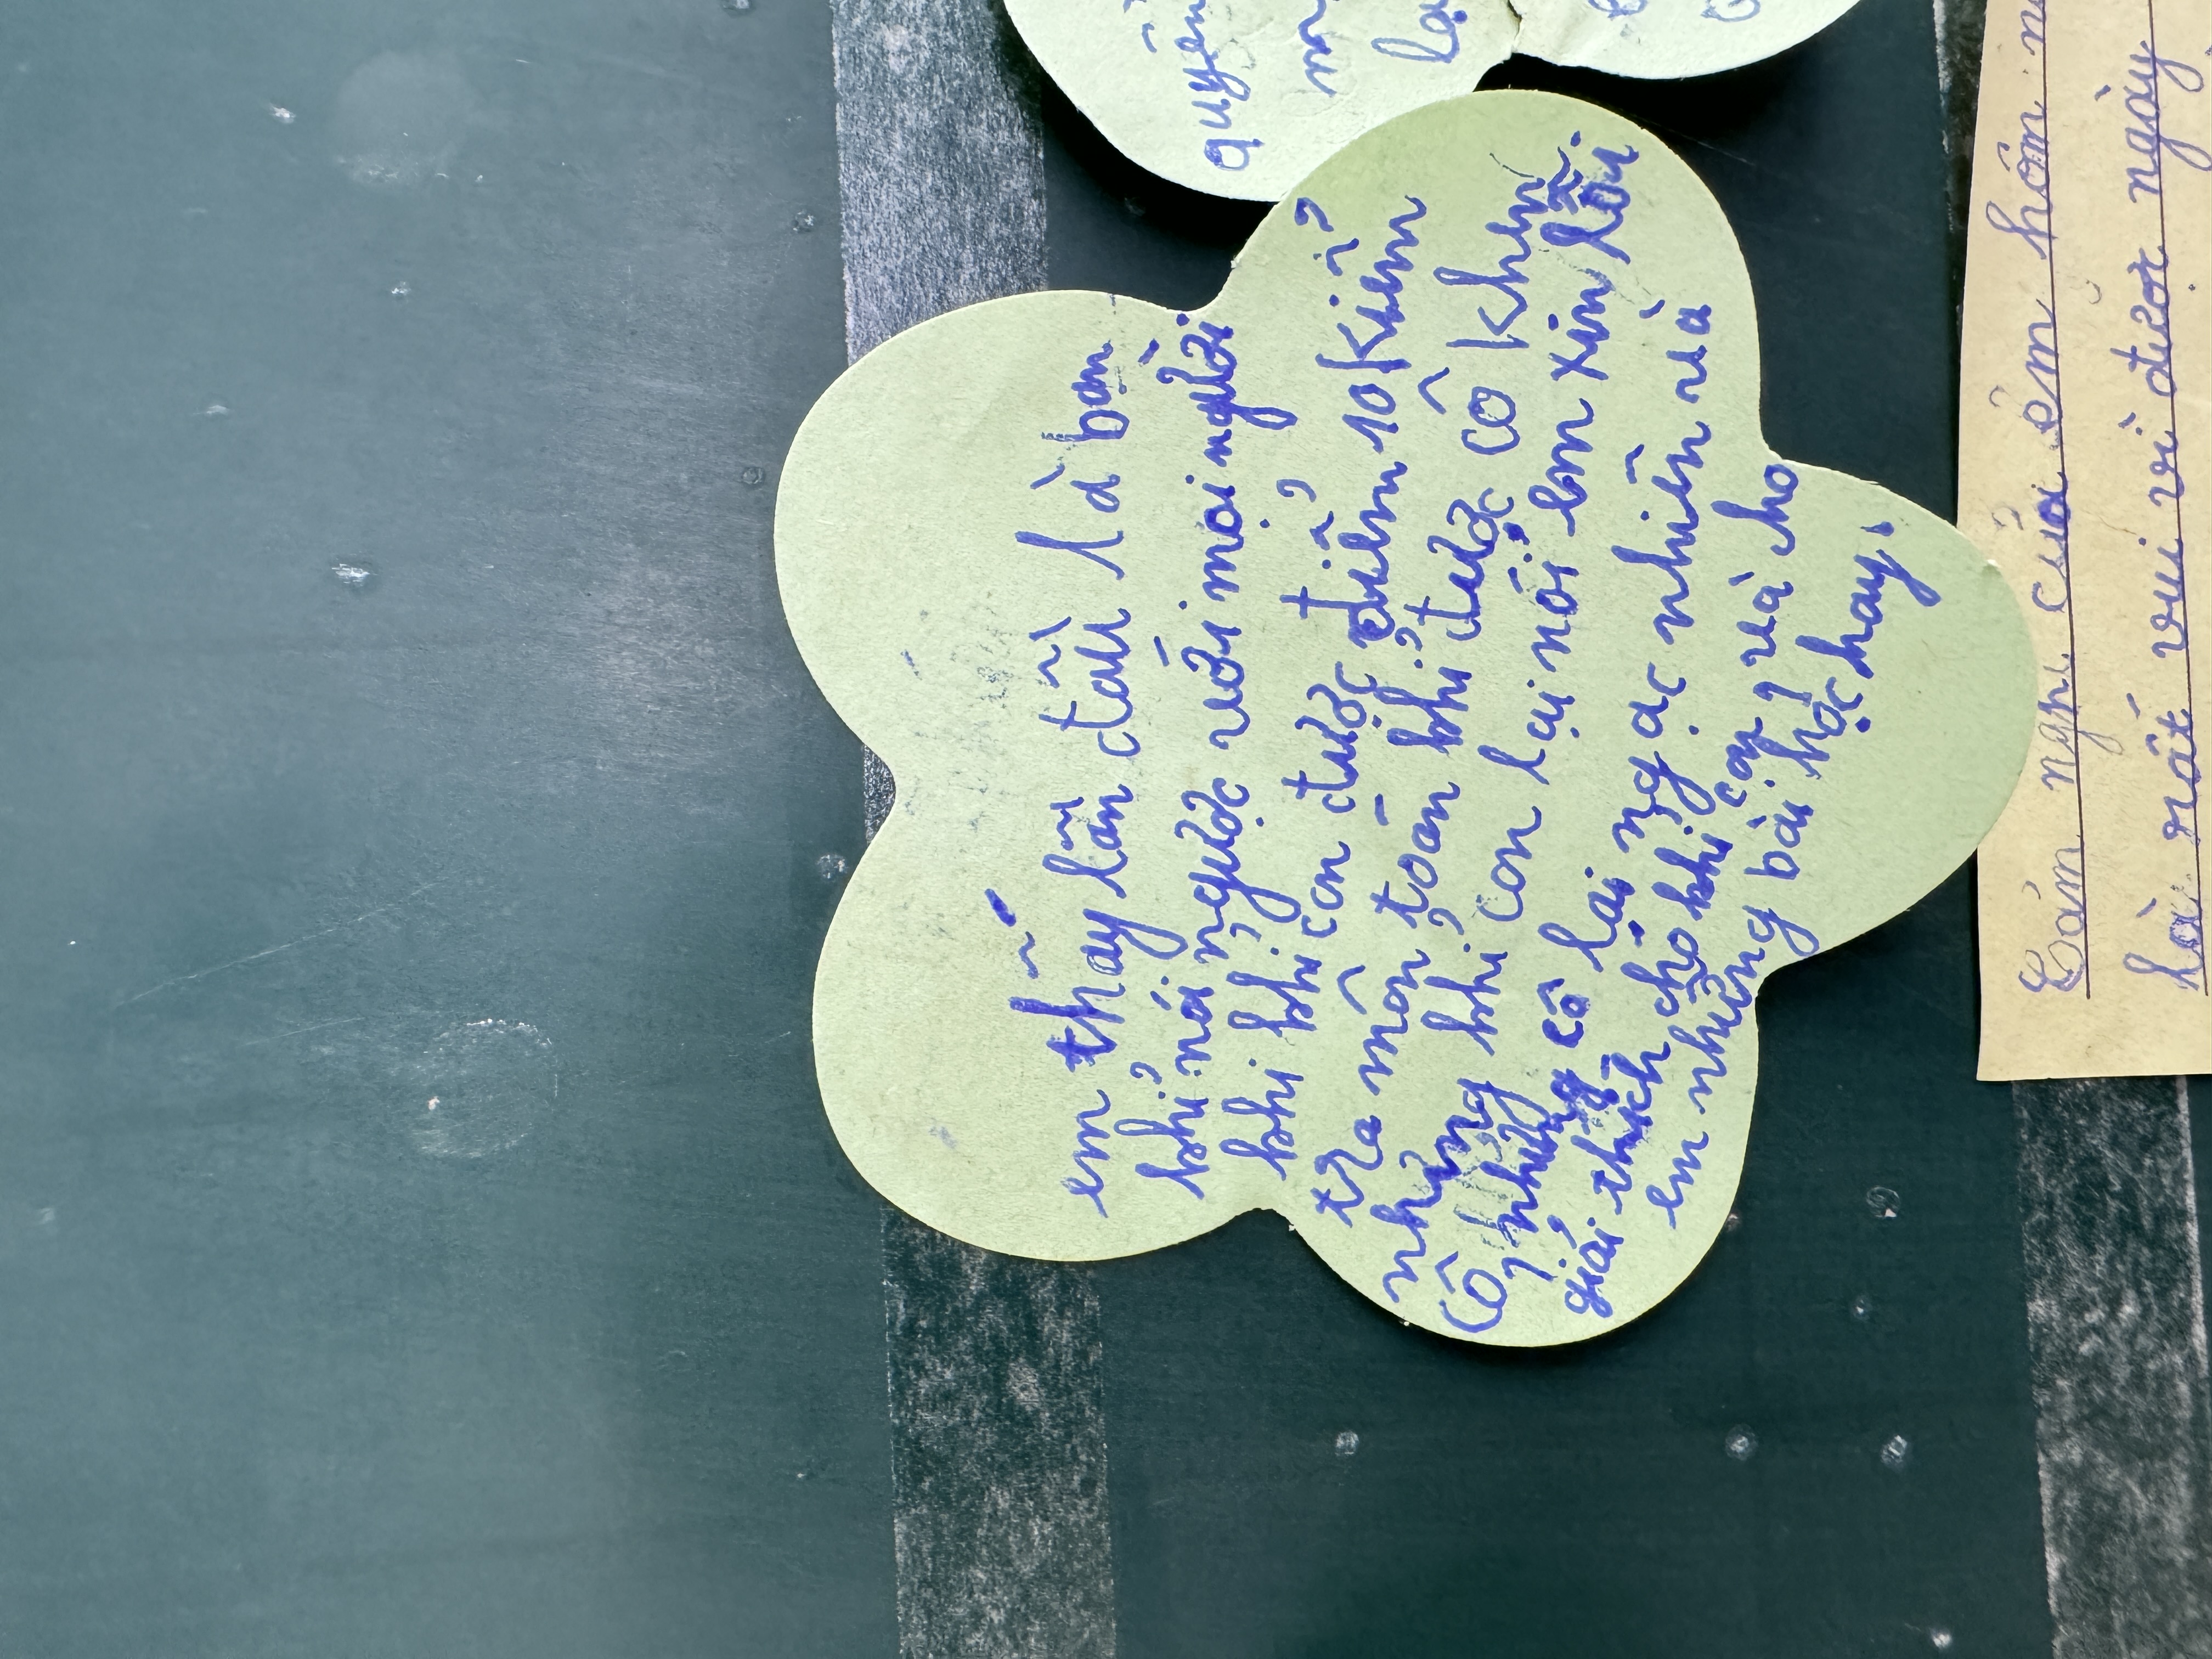 quyên
em thấy lần đầu là bạn
khỉ nói ngược với mọi người
khi khỉ con được điểm 10 kiểm
tra môn toán khỉ được cô khen
nhưng khỉ con lại nói em xin lỗi
cô, nhưng cô lại ngạc nhiên và
giải thích cho khỉ con và cho
em những bài học hay.
Cảm nghĩ của em hôm
là rất vui vì được ngày